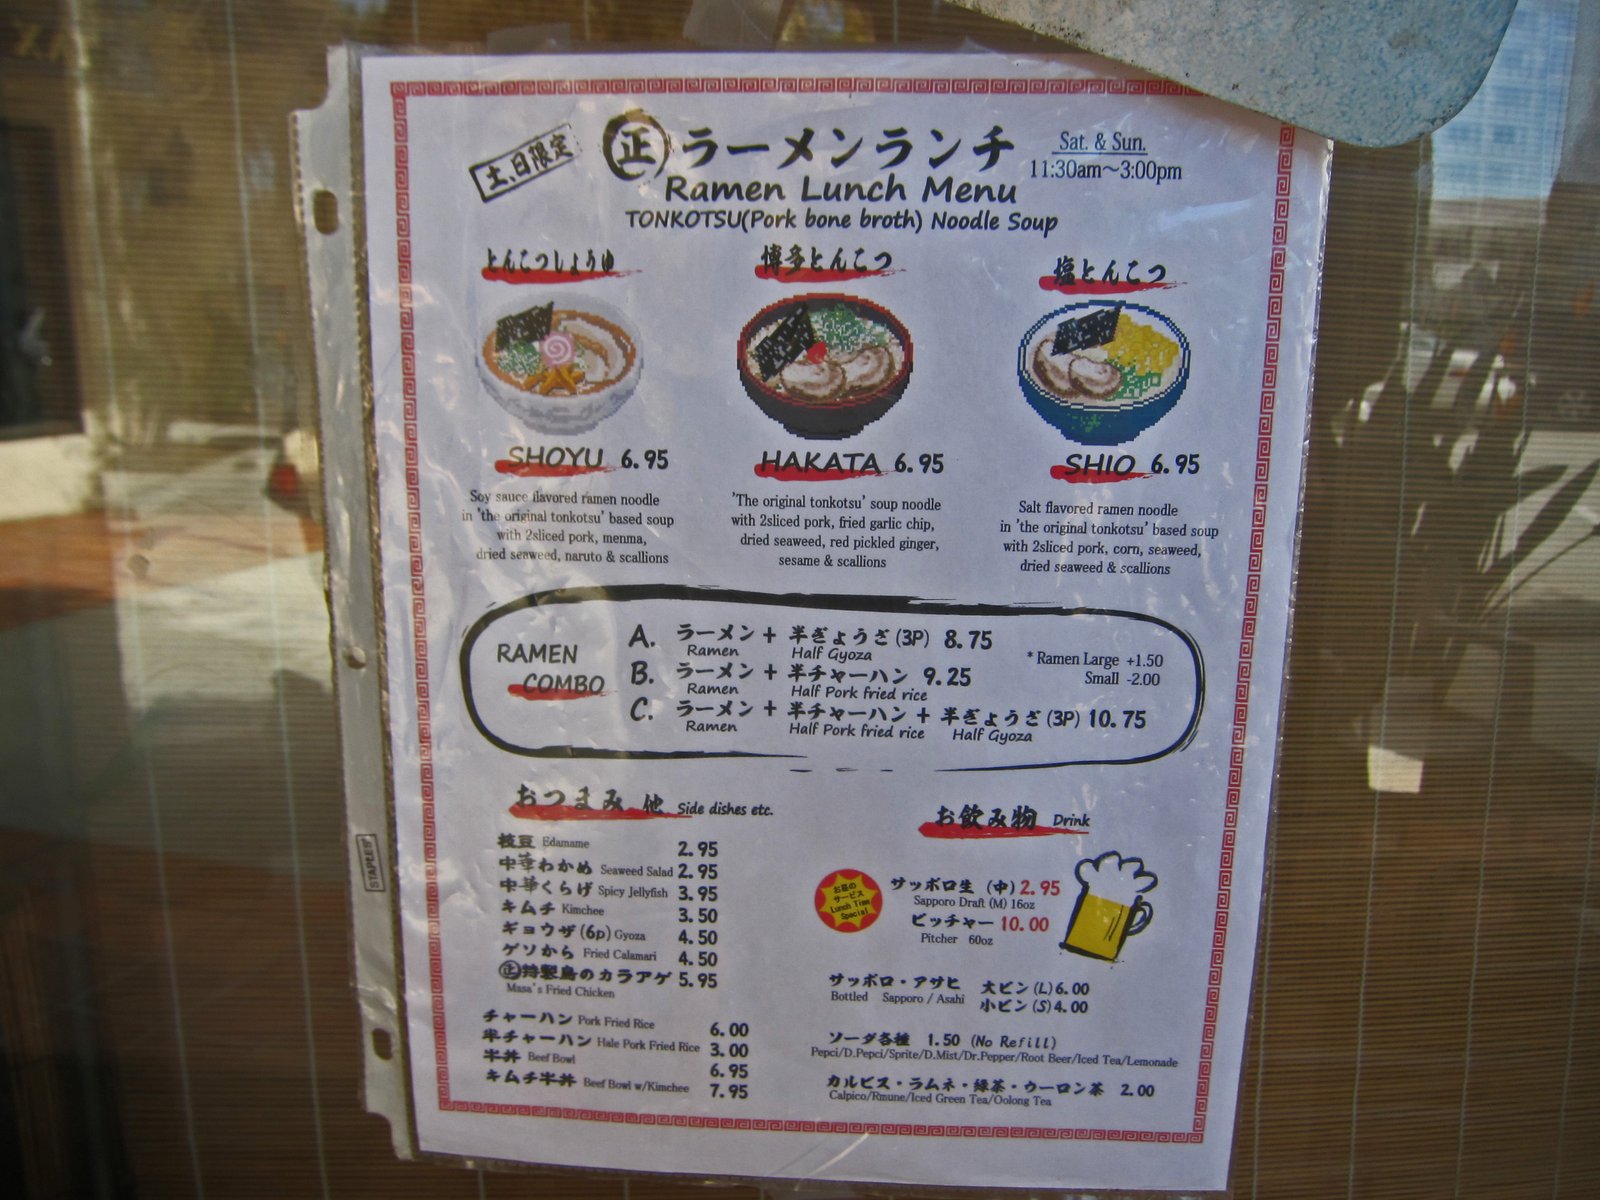 土、日限定
正 ラーメンランチ
Sat. & Sun.
11:30am～3:00pm
Ramen Lunch Menu
TONKOTSU(Pork bone broth) Noodle Soup
とんこつしょうゆ
SHOYU 6.95
Soy sauce flavored ramen noodle
in 'the original tonkotsu' based soup
with 2sliced pork, menma,
dried seaweed, naruto & scallions
博多とんこつ
HAKATA 6.95
'The original tonkotsu' soup noodle
with 2sliced pork, fried garlic chip,
dried seaweed, red pickled ginger,
sesame & scallions
塩とんこつ
SHIO 6.95
Salt flavored ramen noodle
in 'the original tonkotsu' based soup
with 2sliced pork, corn, seaweed,
dried seaweed & scallions
RAMEN
COMBO
A. ラーメン + 半ぎょうざ (3P) 8.75
Ramen Half Gyoza
B. ラーメン + 半チャーハン 9.25
Ramen Half Pork fried rice
C. ラーメン + 半チャーハン + 半ぎょうざ (3P) 10.75
Ramen Half Pork fried rice Half Gyoza
* Ramen Large +1.50
Small -2.00
おつまみ 他 Side dishes etc.
枝豆 Edamame 2.95
中華わかめ Seaweed Salad 2.95
中華くらげ Spicy Jellyfish 3.95
キムチ Kimchee 3.50
ギョウザ (6p) Gyoza 4.50
ゲソから Fried Calamari 4.50
正特製鳥のカラアゲ 5.95
Masa's Fried Chicken
チャーハン Pork Fried Rice 6.00
半チャーハン Hale Pork Fried Rice 3.00
牛丼 Beef Bowl 6.95
キムチ牛丼 Beef Bowl w/Kimchee 7.95
お飲み物 Drink
お昼の
サービス
Lunch Time
Special
サッポロ生 (中) 2.95
Sapporo Draft (M) 16oz
ピッチャー 10.00
Pitcher 60oz
サッポロ・アサヒ 大ビン (L) 6.00
Bottled Sapporo / Asahi 小ビン (S) 4.00
ソーダ各種 1.50 (No Refill)
Pepci/D.Pepci/Sprite/D.Mist/Dr.Pepper/Root Beer/Iced Tea/Lemonade
カルピス・ラムネ・緑茶・ウーロン茶 2.00
Calpico/Rmune/Iced Green Tea/Oolong Tea
STAPLES